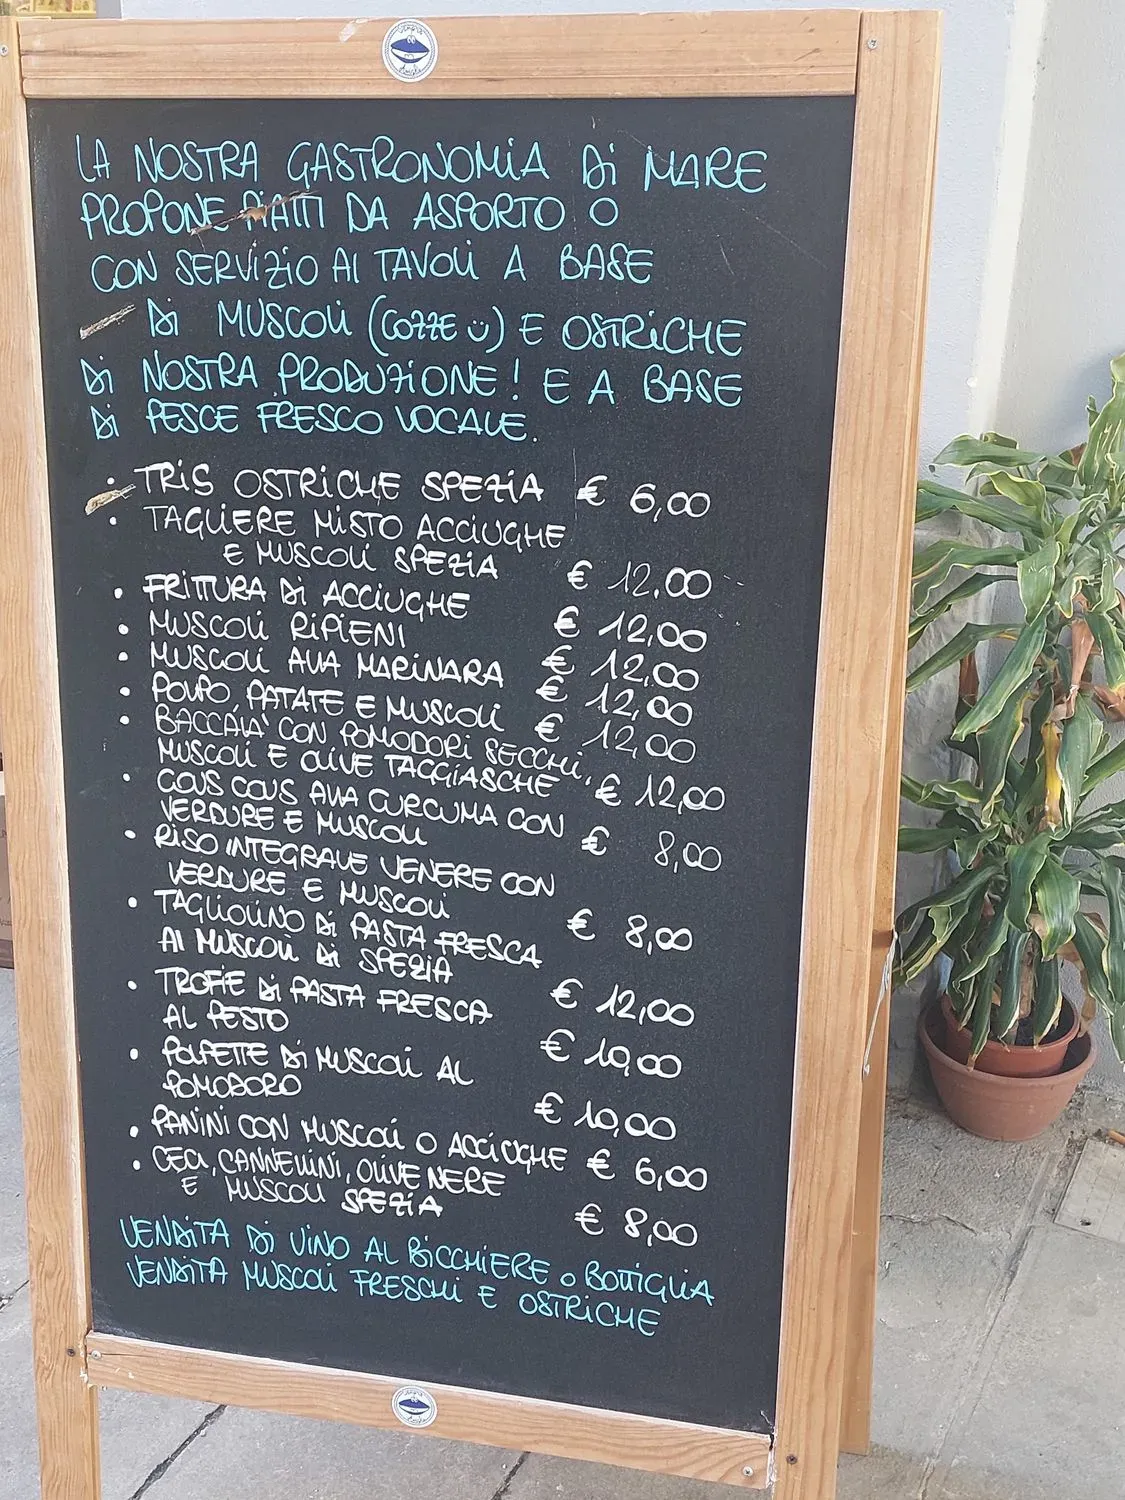 LA NOSTRA GASTRONOMIA DI MARE
PROPONE PIATTI DA ASPORTO O
CON SERVIZIO AI TAVOLI A BASE
DI MUSCOLI (COZZE ü) E OSTRICHE
DI NOSTRA PRODUZIONE! E A BASE
DI PESCE FRESCO VOCALE.
• TRIS OSTRICHE SPEZIA € 6,00
• TAGLIERE MISTO ACCIUGHE
E MUSCOLI SPEZIA € 12,00
• FRITTURA DI ACCIUGHE € 12,00
• MUSCOLI RIPIENI € 12,00
• MUSCOLI ALLA MARINARA € 12,00
• POLPO, PATATE E MUSCOLI € 12,00
• BACCALA' CON POMODORI SECCHI,
MUSCOLI E OLIVE TAGGIASCHE € 12,00
• COUS COUS ALLA CURCUMA CON
VERDURE E MUSCOLI € 8,00
• RISO INTEGRALE VENERE CON
VERDURE E MUSCOLI € 8,00
• TAGLIOLINO DI PASTA FRESCA
AI MUSCOLI DI SPEZIA € 12,00
• TROFIE DI PASTA FRESCA
AL PESTO € 10,00
• POLPETTE DI MUSCOLI AL
POMODORO € 10,00
• PANINI CON MUSCOLI O ACCIUGHE € 6,00
• CECI, CANNELLINI, OLIVE NERE
E MUSCOLI SPEZIA € 8,00
VENDITA DI VINO AL BICCHIERE O BOTTIGLIA
VENDITA MUSCOLI FRESCHI E OSTRICHE